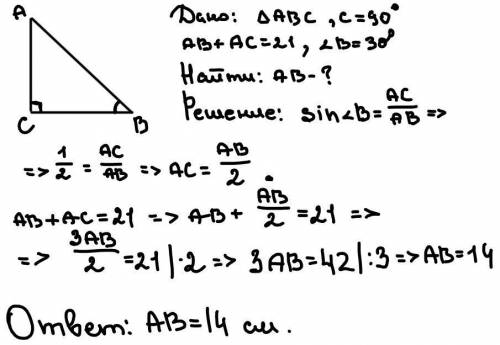 A
C
B
Дано: △ABC, C=90°
AB+AC=21, ∠B=30°
Найти: AB-?
Решение: sin∠B=AC/AB =>
=> 1/2 = AC/AB => AC= AB/2
AB+AC=21 => AB+ AB/2 =21 =>
=> 3AB/2 =21|·2 => 3AB=42|:3=>AB=14
Ответ: AB=14 см.